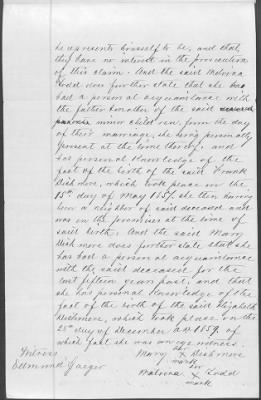 he represents himself to be, and that
they have no interest in the prosecution
of this claim. And the said Malvina
Todd does further state that she
had a personal acquaintance with
the father & mother of the said
minor children, form the day
of their marriage, she being personally
present at the time thereof; and
has personal knowledge of the
fact of the birth of the said Frank
Dishmore, which took place on the
15th day of May 1857 she then having
been a neighbor of said deceased and
was on the premises at the time of
said birth. And the said Mary
Dishmore does further state that she
has had a personal acquaintance
with the said deceased for the
last fifteen years past, and that
she has personal knowledge of the
fact of the birth of the said Elizabeth
Dishmore, which took place on the
25th day of December A.D. 1859, of
which fact she was an eye witness.
Witness
Edmund Jaeger
Mary her x mark Dishmore
Malvina her x mark Todd